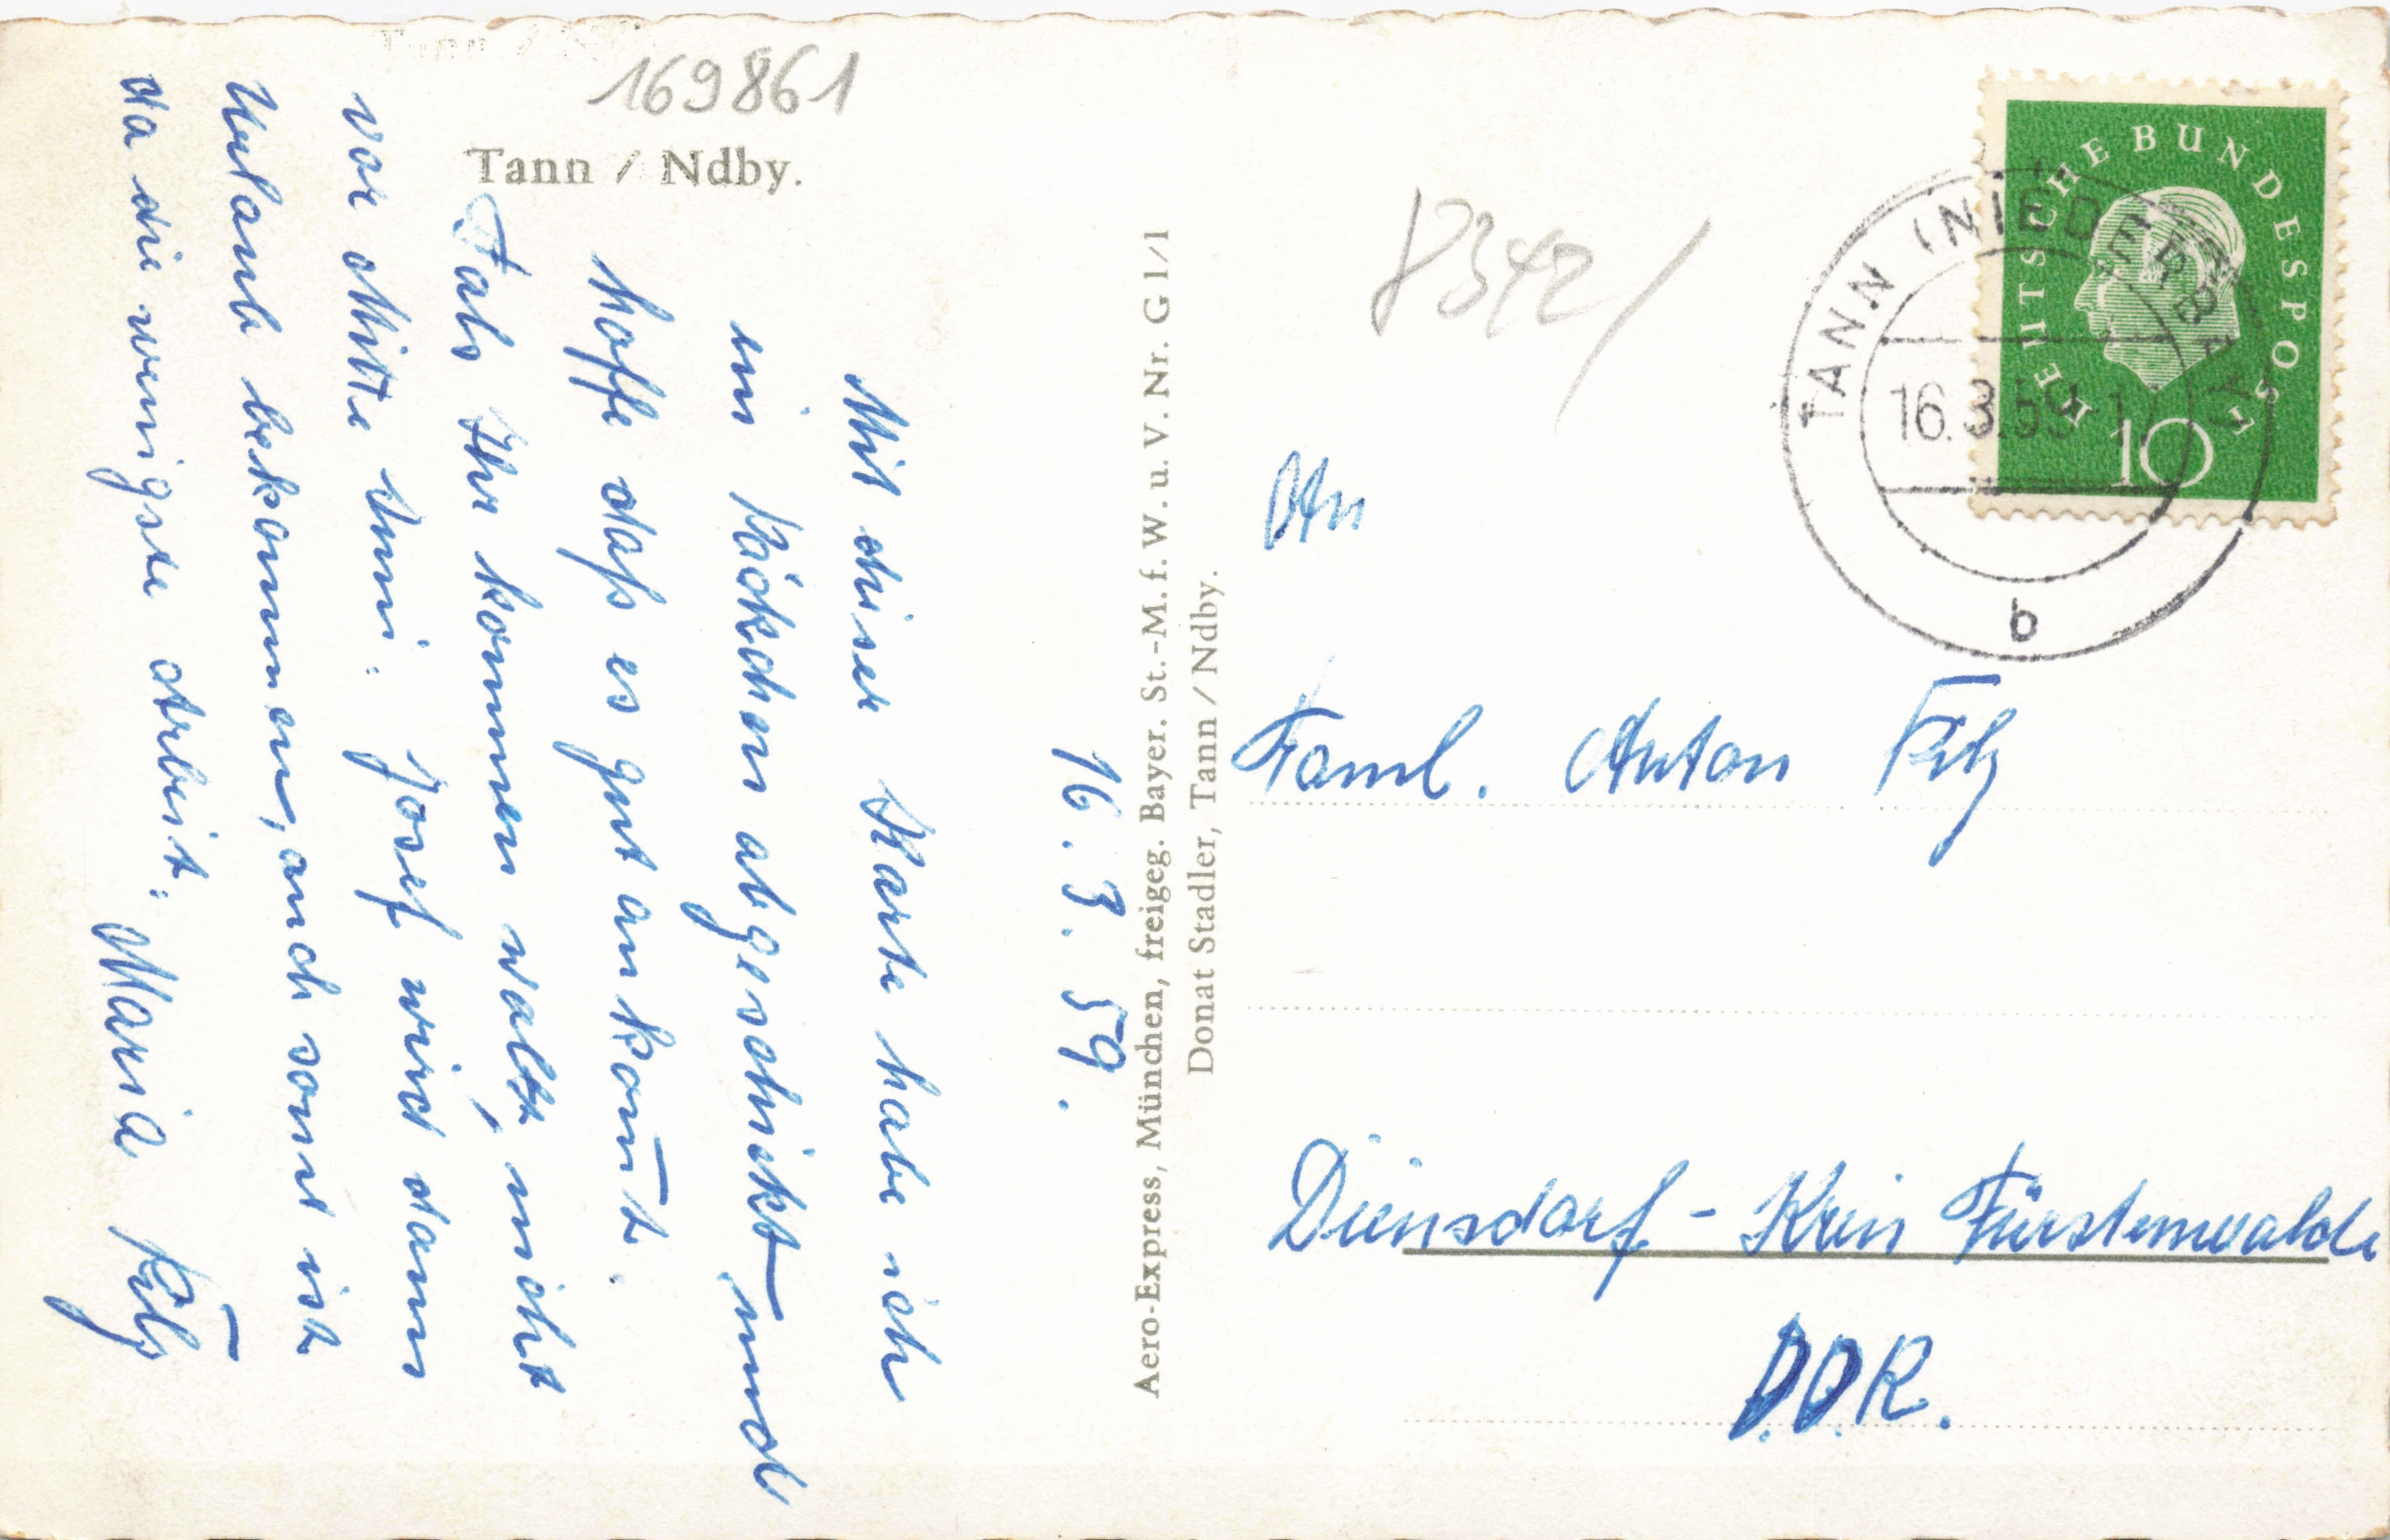 169861
Tann / Ndby.
16. 3. 59.
Mit dieser Karte habe ich
ein Päckchen abgeschickt und
hoffe daß es gut ankom̄t.
Fals Ihr kommen wollt, nicht
vor Mitte Juni. Josef wird dann
Urlaub bekommen, auch sonst ist
da die wenigste Arbeit. Maria
Aero-Express, München, freigeg. Bayer. St.-M. f. W. u. V. Nr. G 1/1
Donat Stadler, Tann / Ndby.
8342/
DEUTSCHE BUNDESPOST
10
TANN (NIEDERBAY
16.3.59
b
An
Faml. Anton
Diensdorf - Kreis Fürstenwalde
D.D.R.